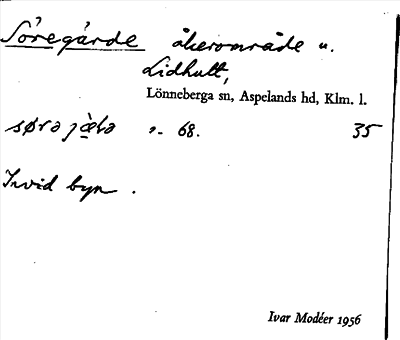 Söregärde åkerområde u.
Lidhult,
Lönneberga sn, Aspelands hd, Klm. l.
sørə 68. 35
Invid byn .
Ivar Modéer 1956